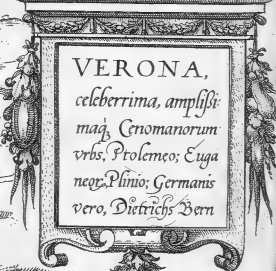 VERONA,
celeberrima, ampliſsi:
maq́₃ Cenomanorum
vrbs, Ptolemęo; Euga
neorꝝ, Plinio; Germanis
vero, Dietrichs Bern